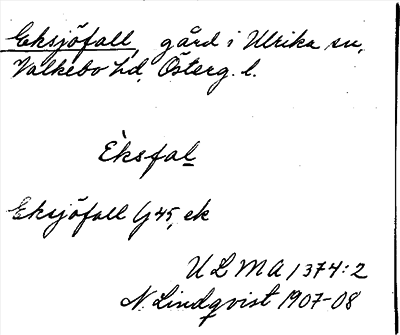 Eksjöfall, gård i Ulrika sn,
Valkebo hd, Österg. l.
Èksfal
Eksjöfall G45, ek
ULMA 1374:2
N. Lindqvist 1907-08